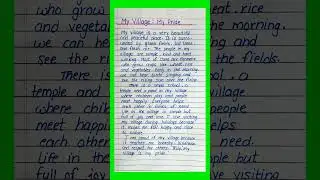 My Village : My Pride
My village is a very beautiful
and peaceful place. It is surro-
unded by green farms, tall trees
and fresh air. The people in my
village are simple, kind and hard
working. Most of them are farmers
who grow crops like wheat, rice
and vegetables. Early in the morning,
we can hear birds singing and
see the rising sun over the fields.
There is a small school, a
temple and a pond in my village
where children play and people
meet happily. Everyone helps
each other in times of need.
Life in the village is simple but
full of joy and love. I like visiting
my village during holidays because
it makes me feel happy and close
to nature.
I am proud of my village because
it teaches me honesty, kindness
and respect for others. Truly, my
village is my pride.
who grow
and vegeta
we can he
see the
There is
temple and
where chil
meet happ
each oth
Life in the
full of joy
eat, rice
the morning,
and
the fields.
ool, a
village
people
helps
need.
ple but
visiting